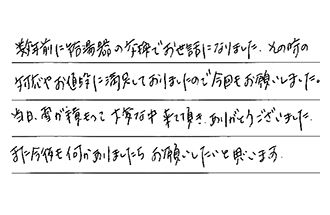 数年前に給湯器の交換でお世話になりました。その時の
対応やお値段に満足しておりましたので今回もお願いしました。
当日、雪が積もって大変な中来て頂き、ありがとうございました。
また今後も何かありましたらお願いしたいと思います。